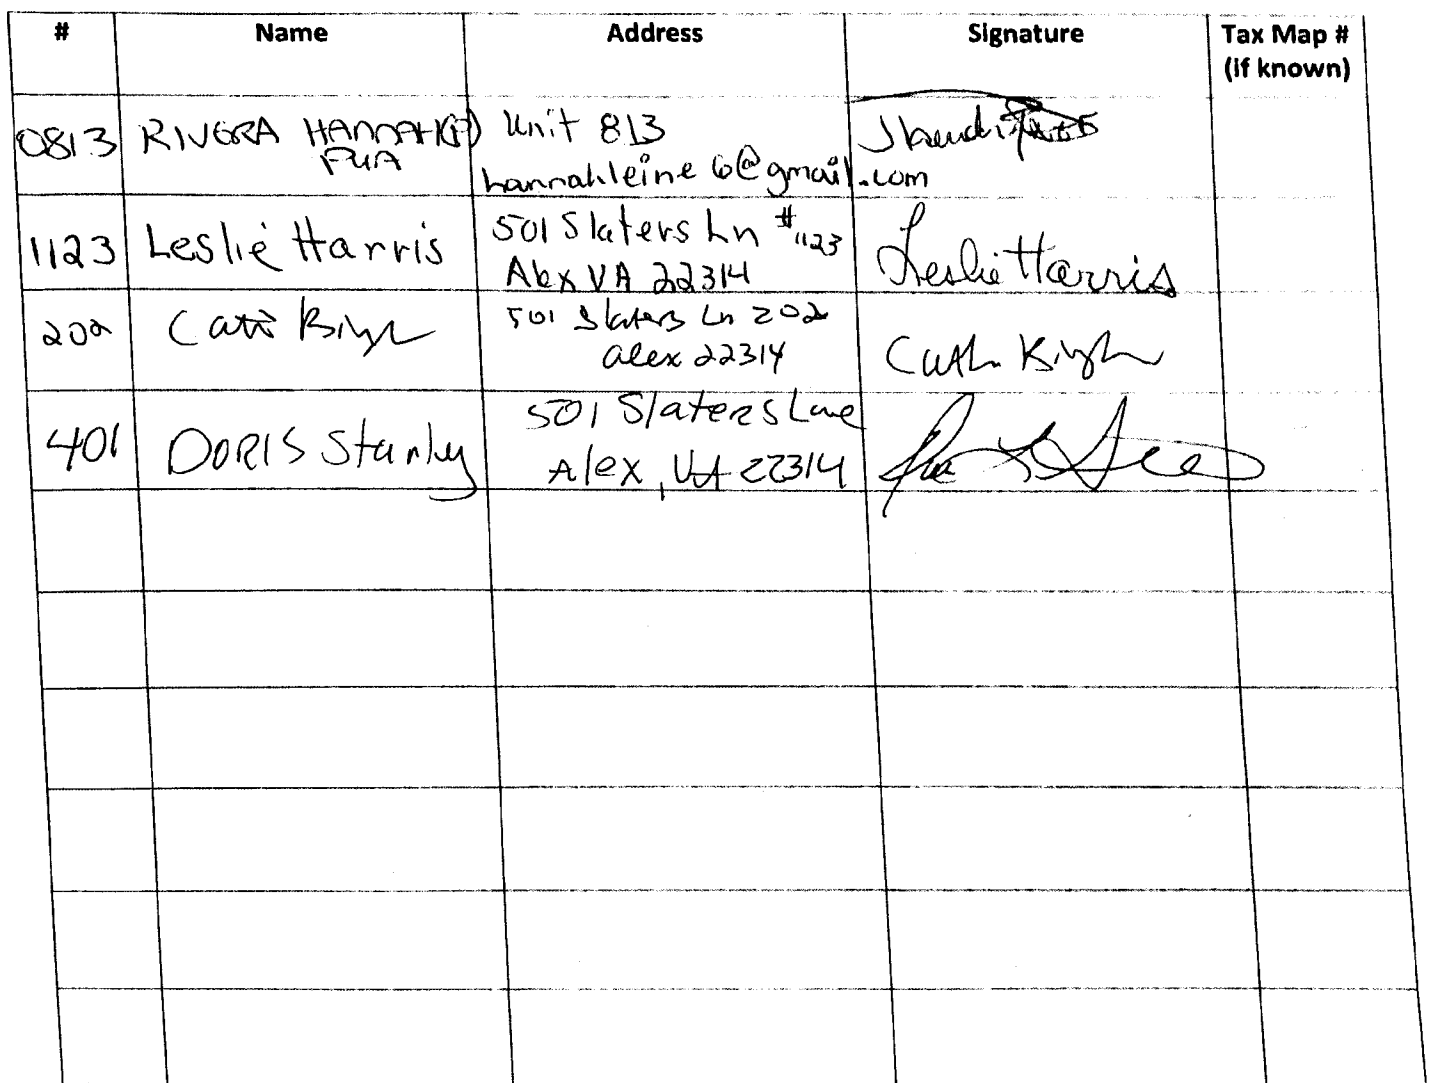 # Name Address Signature Tax Map #
(if known)
0813 RIVERA HANNAH Unit 813
hannahleine6@gmail.com
1123 Leslie Harris 501 Slaters Ln #1123 Leslie Harris
Alex VA 22314
202 501 Slaters Ln 202
Alex 22314
401 DORIS Stanley 501 Slaters Lane
Alex, VA 22314